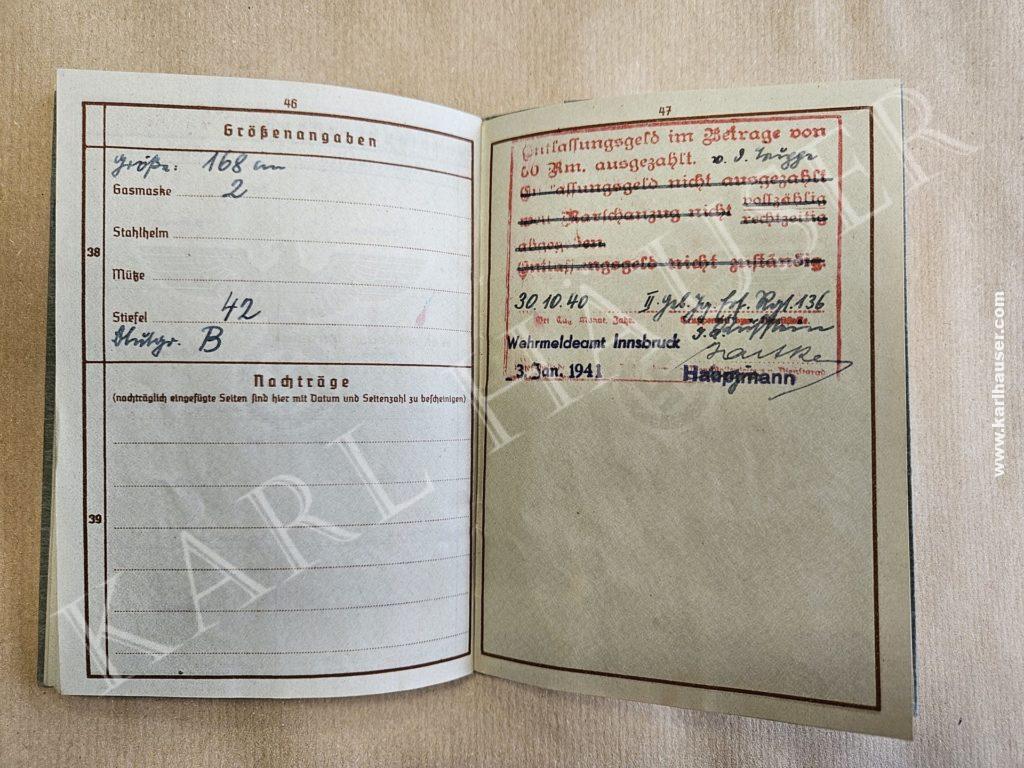 46
Größenangaben
Größe: 168 cm
Gasmaske 2
38
Stahlhelm
Mütze
Stiefel 42
Blutgr. B
Nachträge
(nachträglich eingefügte Seiten sind hier mit Datum und Seitenzahl zu bescheinigen)
39
47
Entlassungsgeld im Betrage von
50 Rm. ausgezahlt. v. d. Truppe
Entlassungsgeld nicht ausgezahlt
vollzählig
weil Marschanzug nicht rechtzeitig
abgegeben
Entlassungsgeld nicht zuständig
30.10.40 II. Geb. Jg. Ers. Rgt. 136
Ort Tag Monat Jahr
Wehrmeldeamt Innsbruck
3. Jan. 1941
Dienstgrad
Hauptmann
KARL HÄUSER
www.karlhauser.com